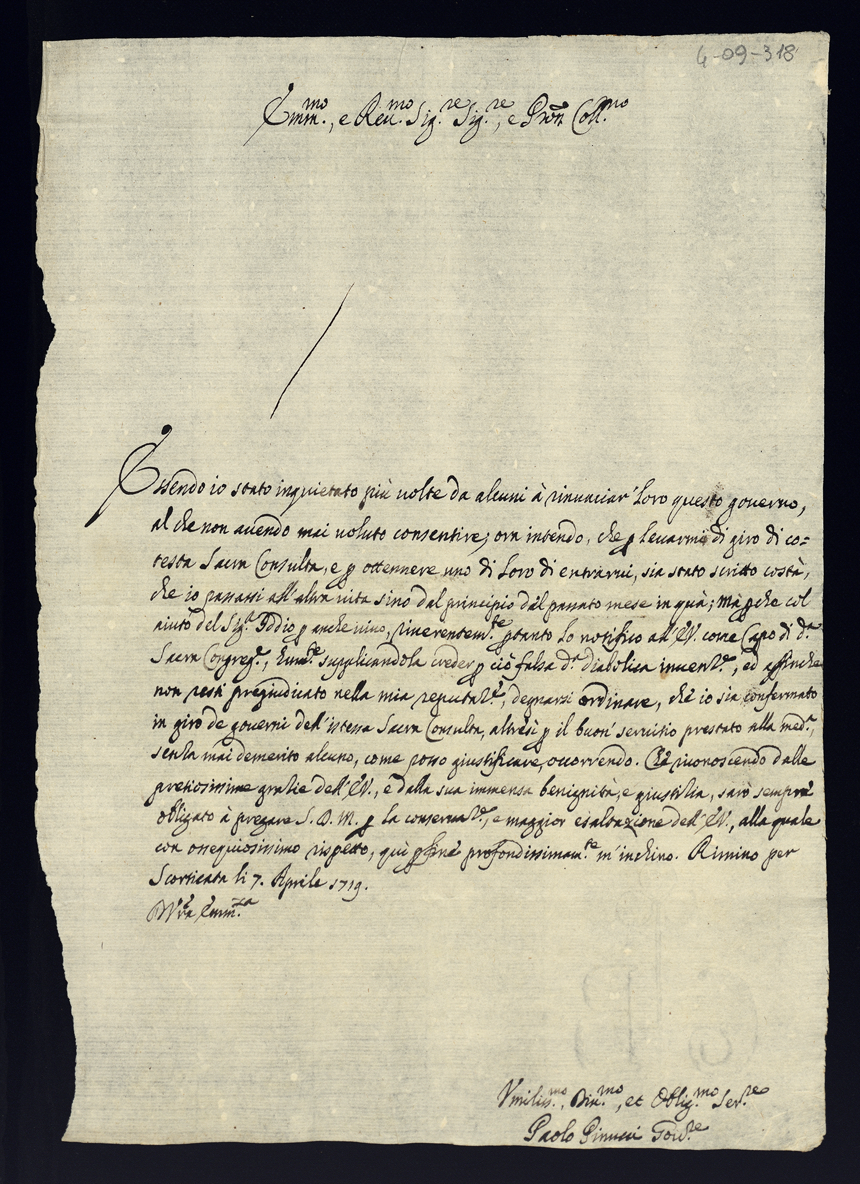 4-09-318
Emm.mo, e Reu.mo Sig.re Sig.re, e Pron Coll.mo
Essendo io stato inquietato più uolte da alcuni à rinunciar' loro questo gouerno,
al che non auendo mai uoluto consentire; ora intendo, che p leuarmi di giro di co=
testa Sacra Consulta, e p ottennere uno di loro di entrarui, sia stato scritto costà,
che io passassi all'altra uita sino dal principio dal passato mese in quà; mà pche col
aiuto del Sig.r Iddio p anche uiuo, riuerentem.te ptanto lo notifico all'E.V. come Capo di d.a
Sacra Congreg.e, humil.te supplicandola creder p ciò falsa d.a diabolica inuen.ne, ed affinche
non resti pregiudicato nella mia reputa.ne, degnarsi ordinare, che io sia confermato
in giro de gouerni dell'istessa Sacra Consulta, altresì p il buon' seruitio prestato alla med.a,
senza mai demerito alcuno, come posso giustificare, occorrendo. Che riconoscendo dalle
pretiosissime gratie dell'E.V., e dalla sua immensa benignità, e giustitia, sarò sempre
obligato à pregare S. D. M. p la conserua.ne, e maggior esaltazione dell'E.V., alla quale
con ossequiosissimo rispetto, qui p fine profondissimam.te m'inchino. Rimino per
Scorticata li 7. Aprile 1719.
D V'ra Emin.za
Vmiliss.mo, Diu.mo, et Oblig.mo Ser.re
Paolo Pinucci Gou.re